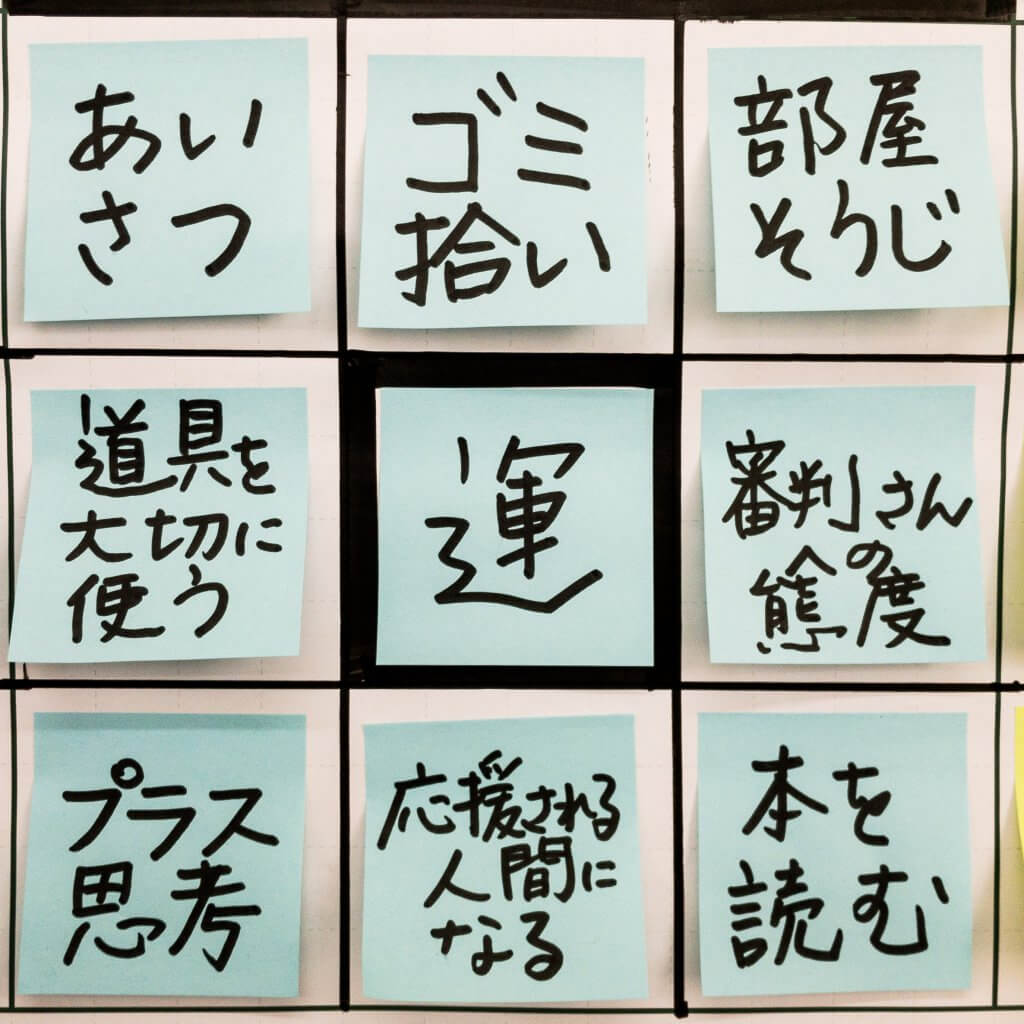 あい
さつ
ゴミ
拾い
部屋
そうじ
道具を
大切に
使う
運
審判さん
の
態度
プラス
思考
応援される
人間に
なる
本を
読む